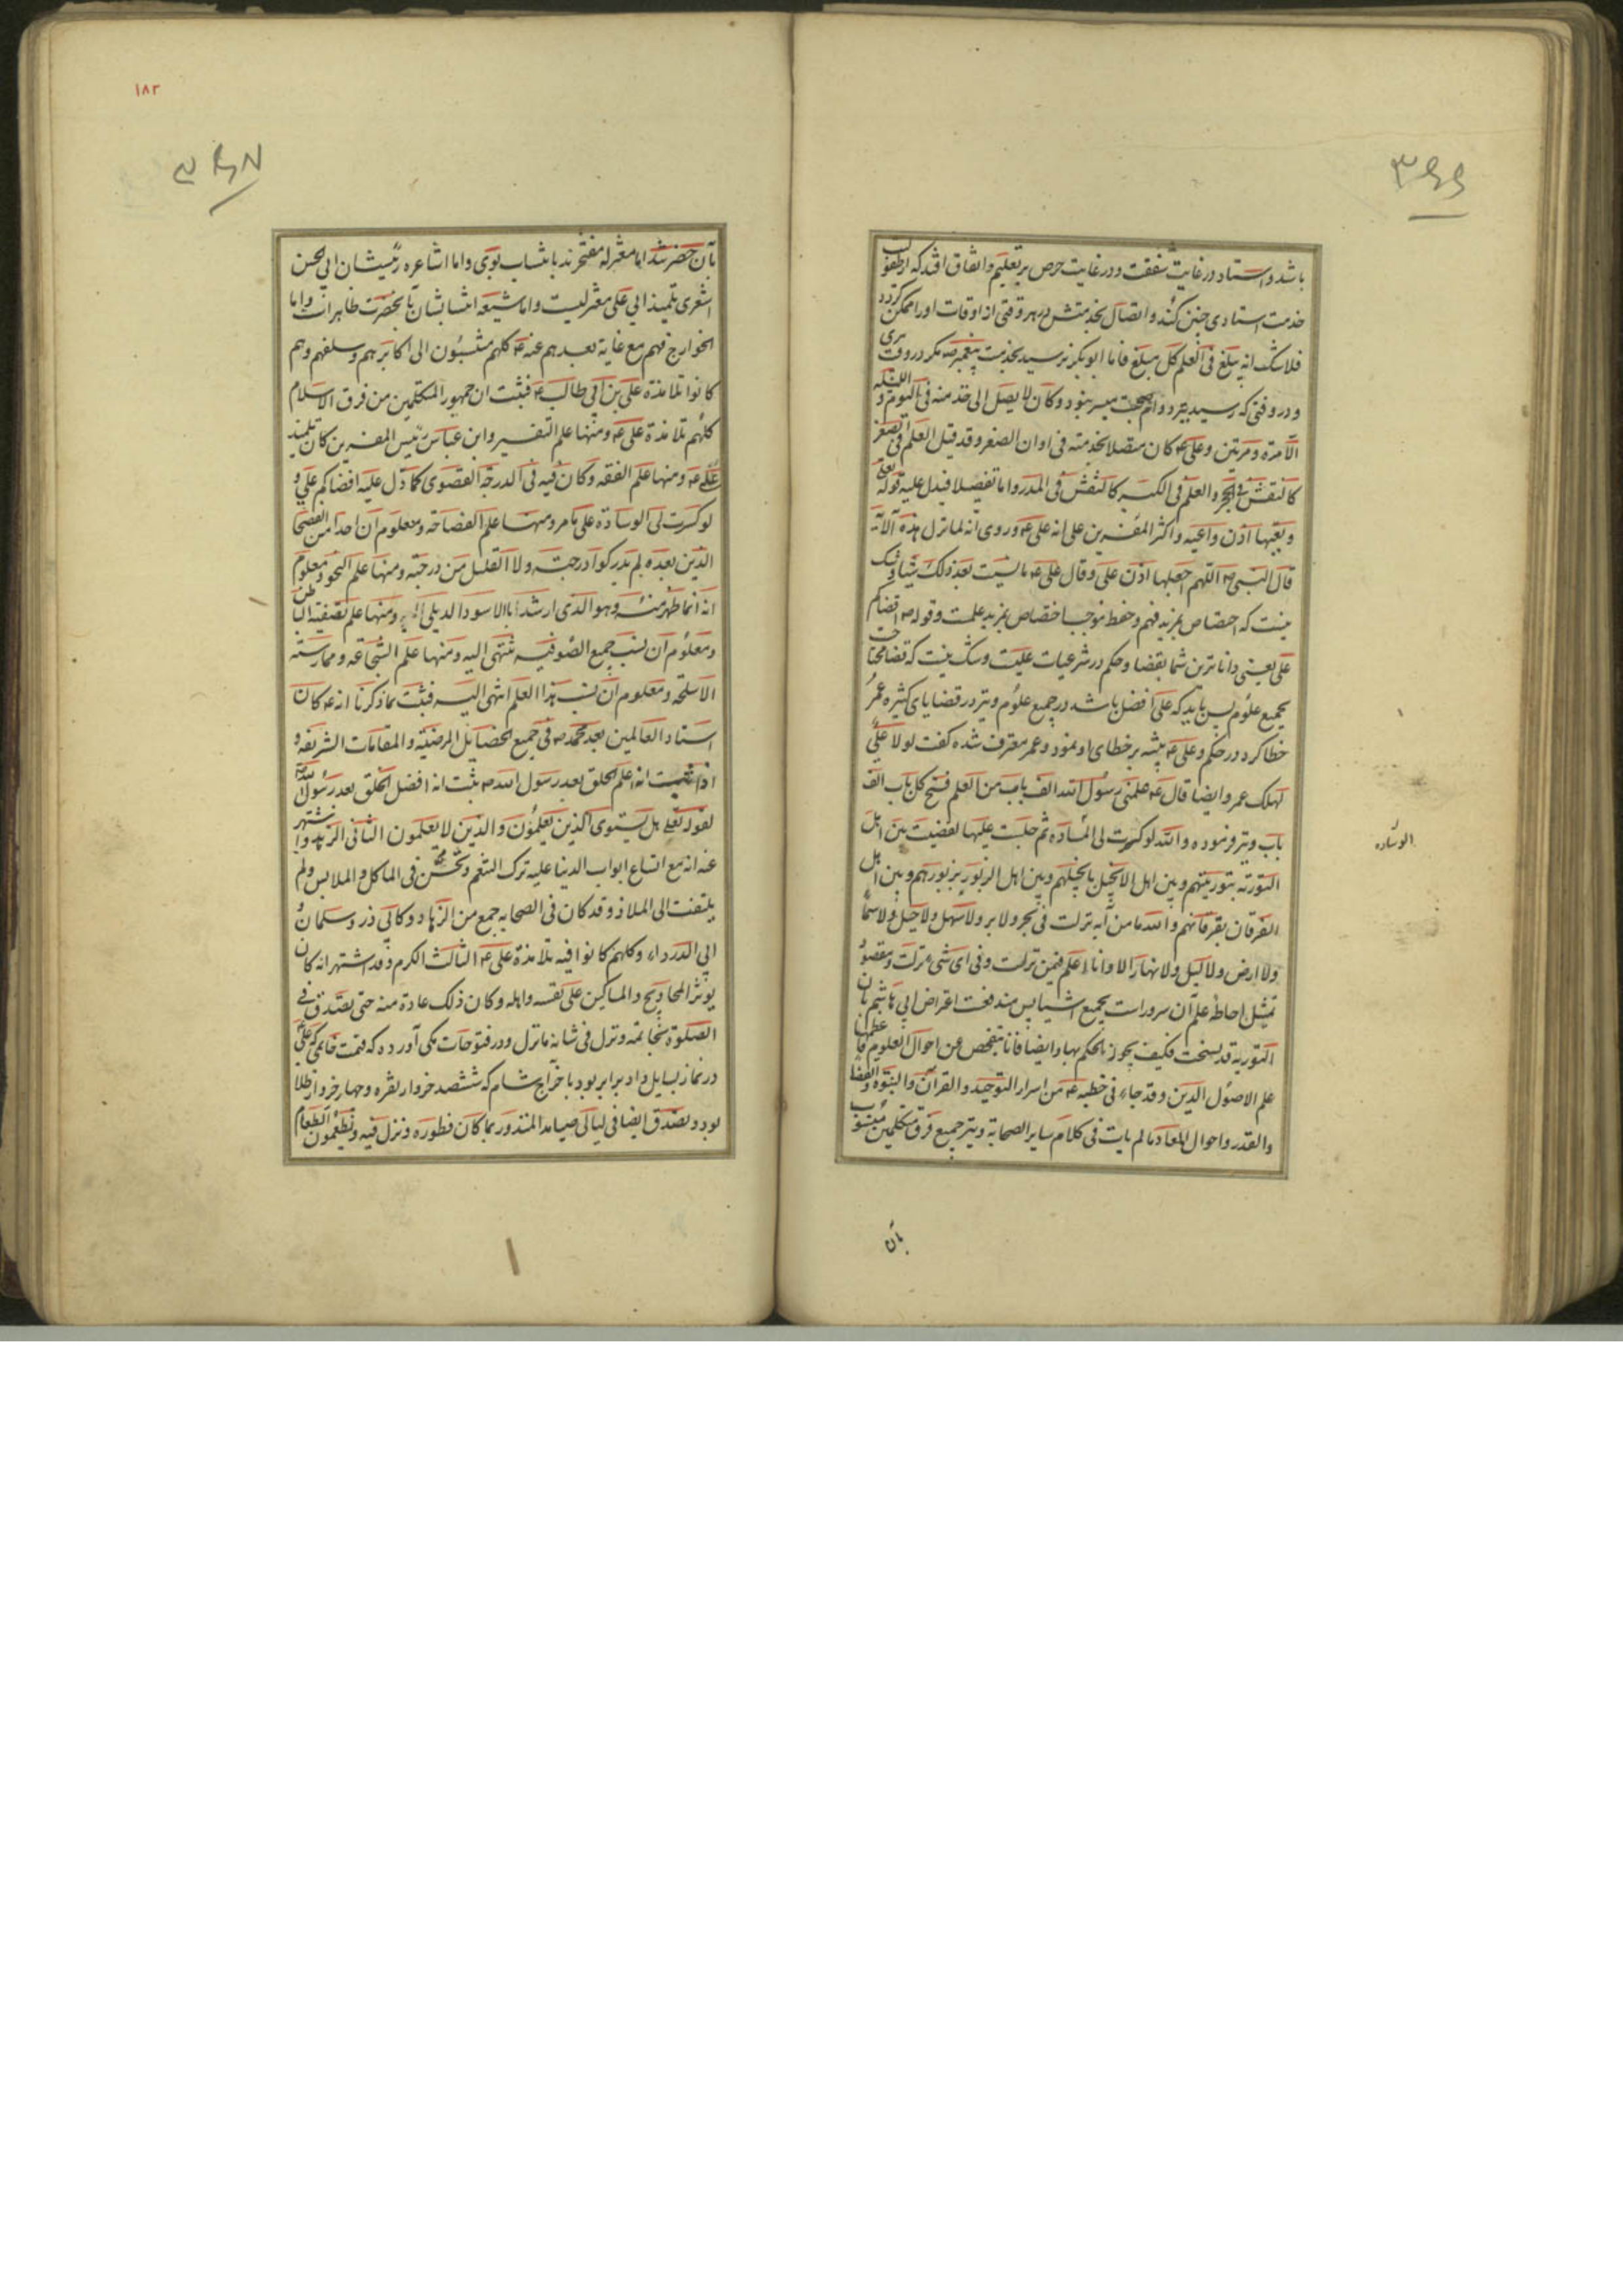 باشد و استاد در غایت شفقت و در غایت حرص بر تعلیم و اتفاق افتد که از طفولیت
خدمت استادی چنین کند و اتصال بخدمتش در هر وقتی از اوقات او را ممکن گردد
فلا شک انه یبلغ فی العلم کل مبلغ فاما ابو بکر نرسید بخدمت پیغمبر ص مکر در وقت پیری
و در وقتی که رسید نیز دوام صحبت میسر نبود و کان لا یصل الی خدمته فی الیوم و اللیلة
الا مرة و مرتین و علی ع کان متصلا بخدمته فی اوان الصغر و قد قیل العلم فی الصغر
کالنقش فی الحجر و العلم فی الکبر کالنقش فی المدر و اما تفصیلا فیدل علیه قوله تعالی
و تعیها اذن واعیه و اکثر المفسرین علی انه علی ع و روی انه لما نزل هذه الآیة
قال النبی ص اللهم اجعلها اذن علی و قال علی ع ما نسیت بعد ذلک شیئا و شک
نیست که اختصاص بمزید فهم و حفظ موجب اختصاص بمزید علمست و قوله ص اقضاکم
علی یعنی داناترین شما بقضا و حکم در شرعیات علیست و شک نیست که قضا محتاجست
بجمیع علوم پس باید که علی افضل باشد در جمیع علوم و نیز در قضایای کثیره عمر
خطا کرد در حکم و علی ع تنبیه بر خطای او نمود و عمر معترف شده گفت لولا علی
لهلک عمر و ایضا قال ع علمنی رسول الله الف باب من العلم فتح کل باب الف
باب و نیز فرموده و الله لو کسرت لی السادة ثم جلست علیها لقضیت بین اهل
التوریة بتوریتهم و بین اهل الانجیل بانجیلهم و بین اهل الزبور بزبورهم و بین اهل
الفرقان بفرقانهم و الله ما من آیه نزلت فی بحر و لا بر و لا سهل و لا جبل و لا سماء
و لا ارض و لا لیل و لا نهار الا و انا اعلم فیمن نزلت و فی ای شی نزلت و مقصود
تمثیل احاطه علم آن سرور است بجمیع اشیا پس مندفعت اعتراض ابی هاشم بان
التوریه قد نسخت فکیف یجوز الحکم بها و ایضا فانا نتفحص عن احوال العلوم فاعظمها
علم الاصول الدین و قد جاء فی خطبه ع من اسرار التوحید و القرآن و النبوة و القضا
و القدر و احوال المعاد ما لم یات فی کلام سایر الصحابة و نیز جمیع فرق متکلمین منسوب
بآن
الوساده
بآن حضرتند اما معتزله مفتخرند بانتساب بوی و اما اشاعره رئیسشان ابی الحسن
اشعری تلمیذ ابی علی معتزلیست و اما شیعه انتسابشان بآنحضرت ظاهر است و اما
الخوارج فهم مع غایة بعدهم عنه ع کلهم منتسبون الی اکابرهم و سلفهم و هم
کانوا تلامذة علی بن ابی طالب ع فثبت ان جمهور المتکلمین من فرق الاسلام
کلهم تلامذة علی ع و منها علم التفسیر و ابن عباس رئیس المفسرین کان تلمیذ
علی ع و منها علم الفقه و کان فیه فی الدرجة القصوی کما دل علیه اقضاکم علی و
لو کسرت لی الوسادة علی ما مر و منها علم الفصاحة و معلوم ان احدا من الفصحا
الذین بعده لم یدرکوا درجته و لا القلیل من درجته و منها علم النحو و معلوم
انه انما ظهر منه و هو الذی ارشد ابا الاسود الدیلی الیه و منها علم تصفیة الباطن
و معلوم ان نسب جمیع الصوفیه تنتهی الیه و منها علم الشجاعه و ممارسته
الاسلحة و معلوم ان نسب هذا العلم انتهی الیه فثبت بما ذکرنا انه ع کان
استاد العالمین بعد محمد ص فی جمیع الخصایل المرضیه و المقامات الشریفه و
اذا ثبت انه اعلم الخلق بعد رسول الله ص ثبت انه افضل الخلق بعد رسول الله ص
لقوله تعالی هل یستوی الذین یعلمون و الذین لا یعلمون الثانی الزهد و اشتهر
عنه انه مع اتساع ابواب الدنیا علیه ترک التنعم و تخشن فی الماکل و الملابس و لم
یلتفت الی الملاذ و قد کان فی الصحابه جمع من الزهاد و کابی ذر و سلمان و
ابی الدرداء و کلهم کانوا فیه تلامذة علی ع الثالث الکرم و قد اشتهر انه کان
یوثر المحاویج و المساکین علی نفسه و اهله و کان ذلک عادة منه حتی تصدق فی
الصلوة بخاتمه و نزل فی شانه ما نزل و در فتوحات مکی آورده که قیمت خاتمی که علی
در نماز بسایل داد برابر بود با خراج شام که ششصد خروار نقره و چهار خروار طلا
بود و تصدق ایضا فی لیالی صیامه المنذور بما کان فطوره و نزل فیه و یطعمون الطعام
۱۸۳